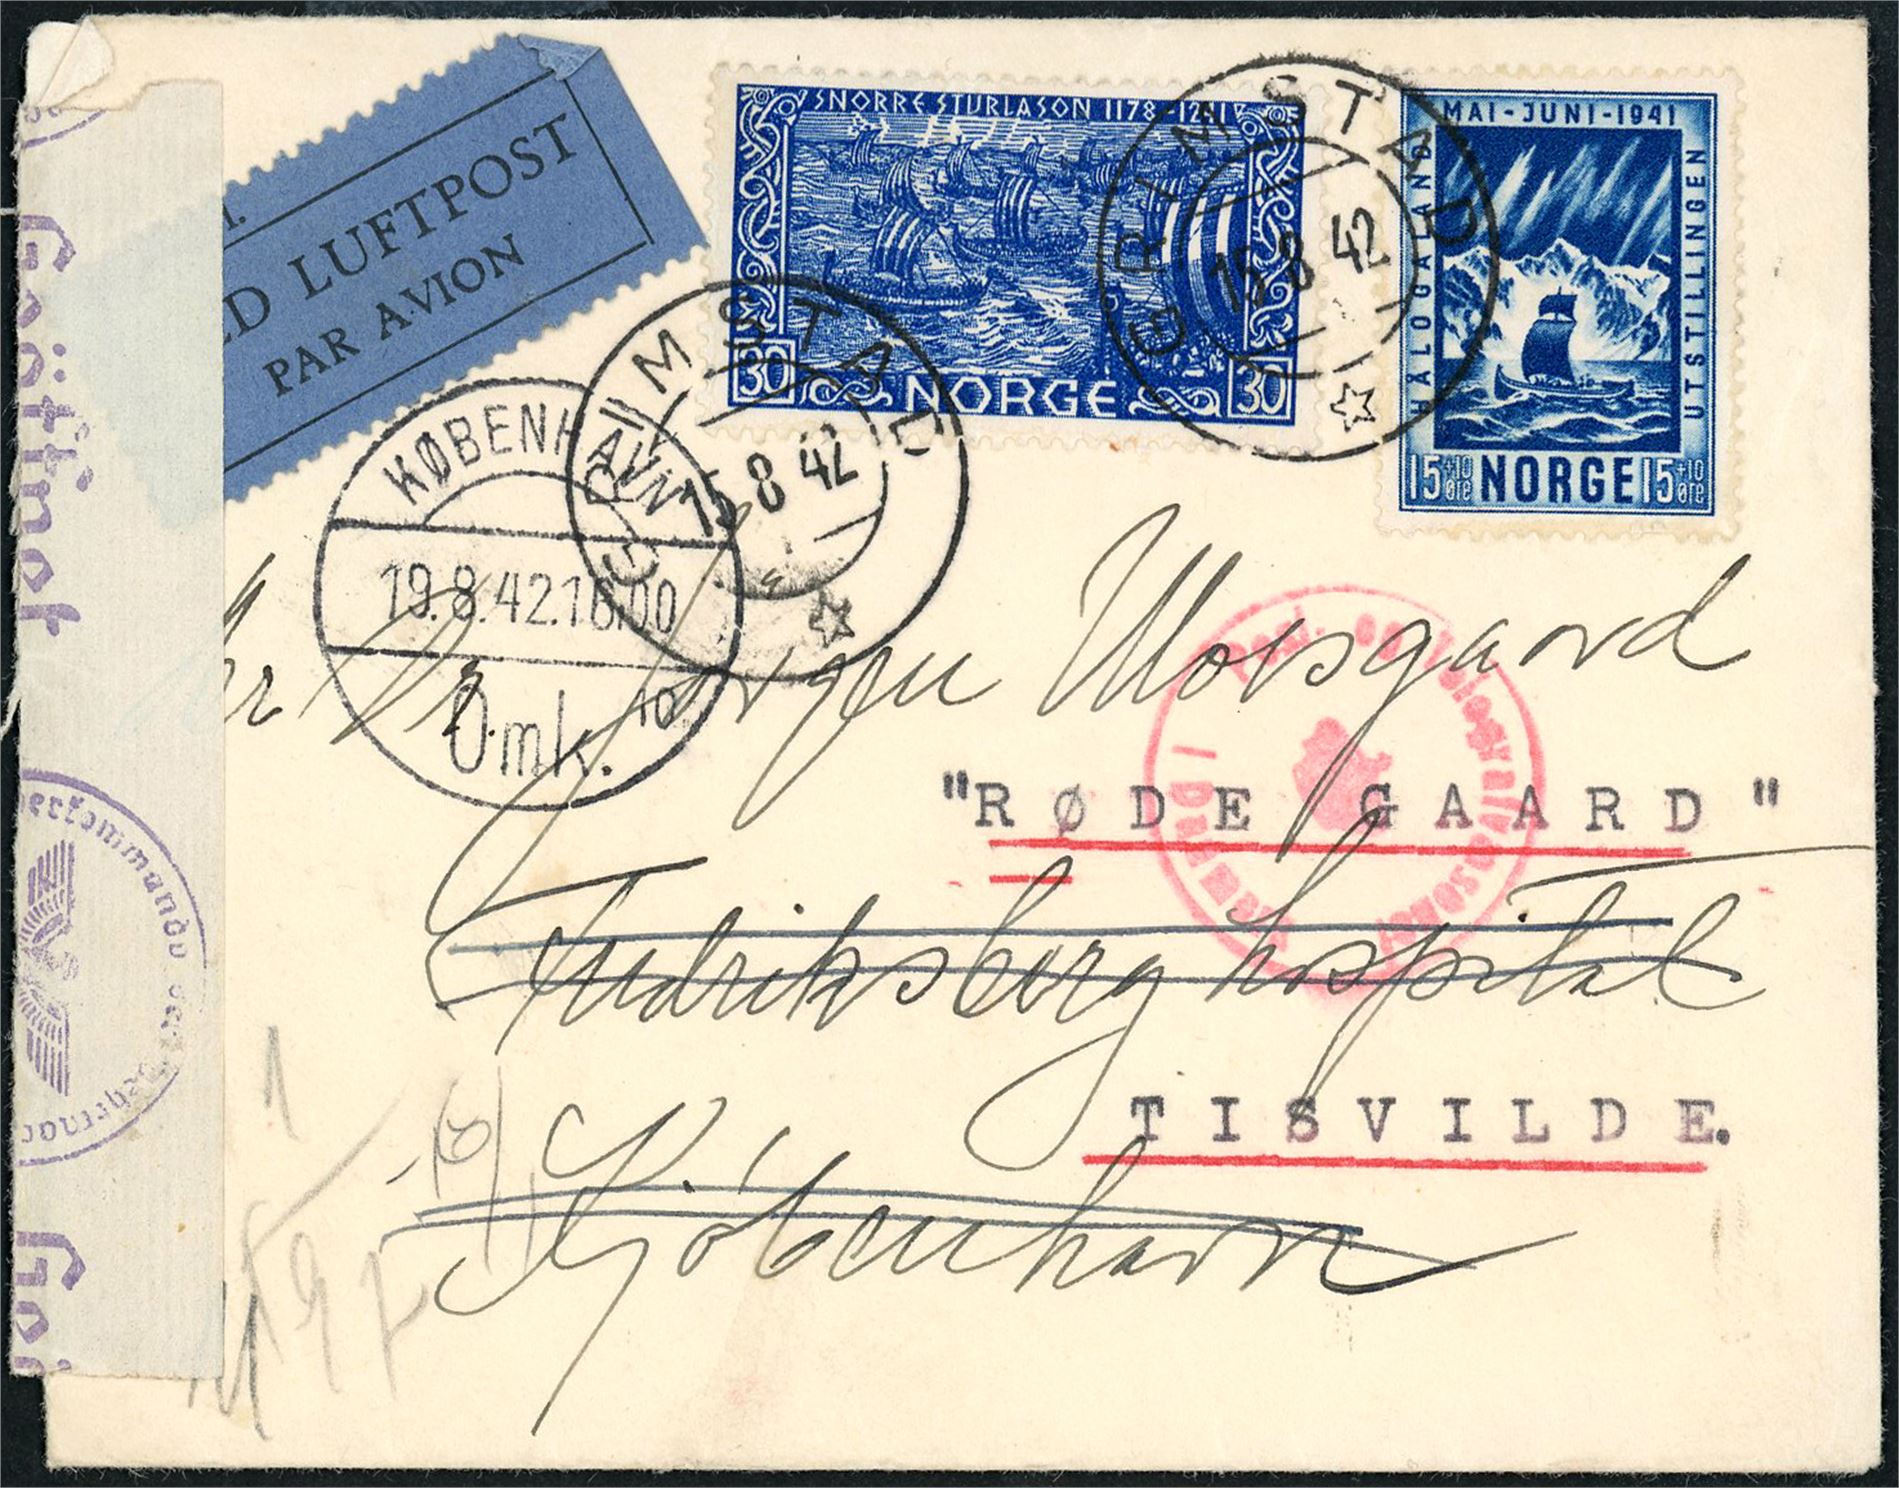 MED LUFTPOST
PAR AVION
SNORRE STURLASON 1178-1241
30 NORGE 30
MAI-JUNI-1941
HÅLOGALAND
UTSTILLINGEN
15 +10 øre NORGE 15 +10 øre
GRIMSTAD
15 8 42
GRIMSTAD
15 8 42
KØBENHAVN
19.8.42.16.00
Omk. 10
Geöffnet
Jørgen Morsgaard
"RØDE GAARD"
Fredriksberg hospital
TISVILDE.
København
Oberkommando der Wehrmacht
Post- og Telegrafvæsenet